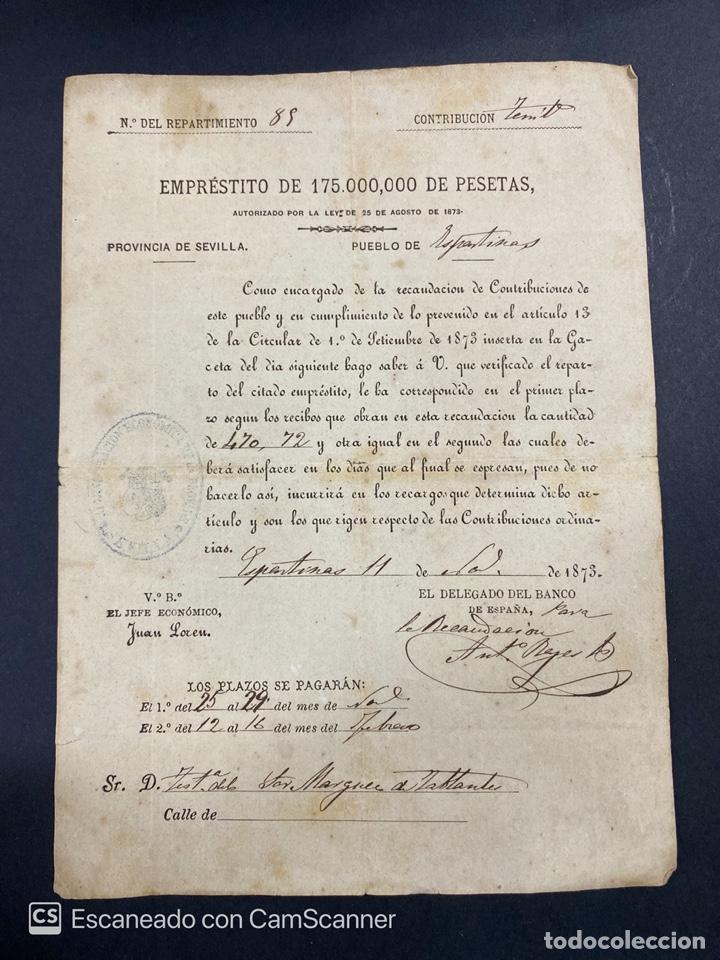 N.º DEL REPARTIMIENTO 89
CONTRIBUCIÓN
EMPRÉSTITO DE 175.000,000 DE PESETAS,
AUTORIZADO POR LA LEY DE 25 DE AGOSTO DE 1873.
PROVINCIA DE SEVILLA. PUEBLO DE Espartinas
Como encargado de la recaudacion de Contribuciones de
este pueblo y en cumplimiento de lo prevenido en el artículo 13
de la Circular de 1.º de Setiembre de 1873 inserta en la Ga-
ceta del dia siguiente hago saber á V. que verificado el repar-
to del citado empréstito, le ha correspondido en el primer pla-
zo segun los recibos que obran en esta recaudacion la cantidad
de 470,72 y otra igual en el segundo las cuales de-
berá satisfacer en los dias que al final se espresan, pues de no
hacerlo así, incurrirá en los recargos que determina dicho ar-
tículo y son los que rigen respecto de las Contribuciones ordina-
rias.
Espartinas 11 de Nov. de 1873.
V.º B.º
EL JEFE ECONÓMICO,
Juan Loren.
EL DELEGADO DEL BANCO
DE ESPAÑA, para
la Recaudacion
Ant.º Reyes
LOS PLAZOS SE PAGARÁN:
El 1.º del 25 al 29 del mes de Nov.
El 2.º del 12 al 16 del mes del Febrero
Sr. D. Test.ª del Sor. Marques de Tablantes
Calle de
CS Escaneado con CamScanner
todocoleccion